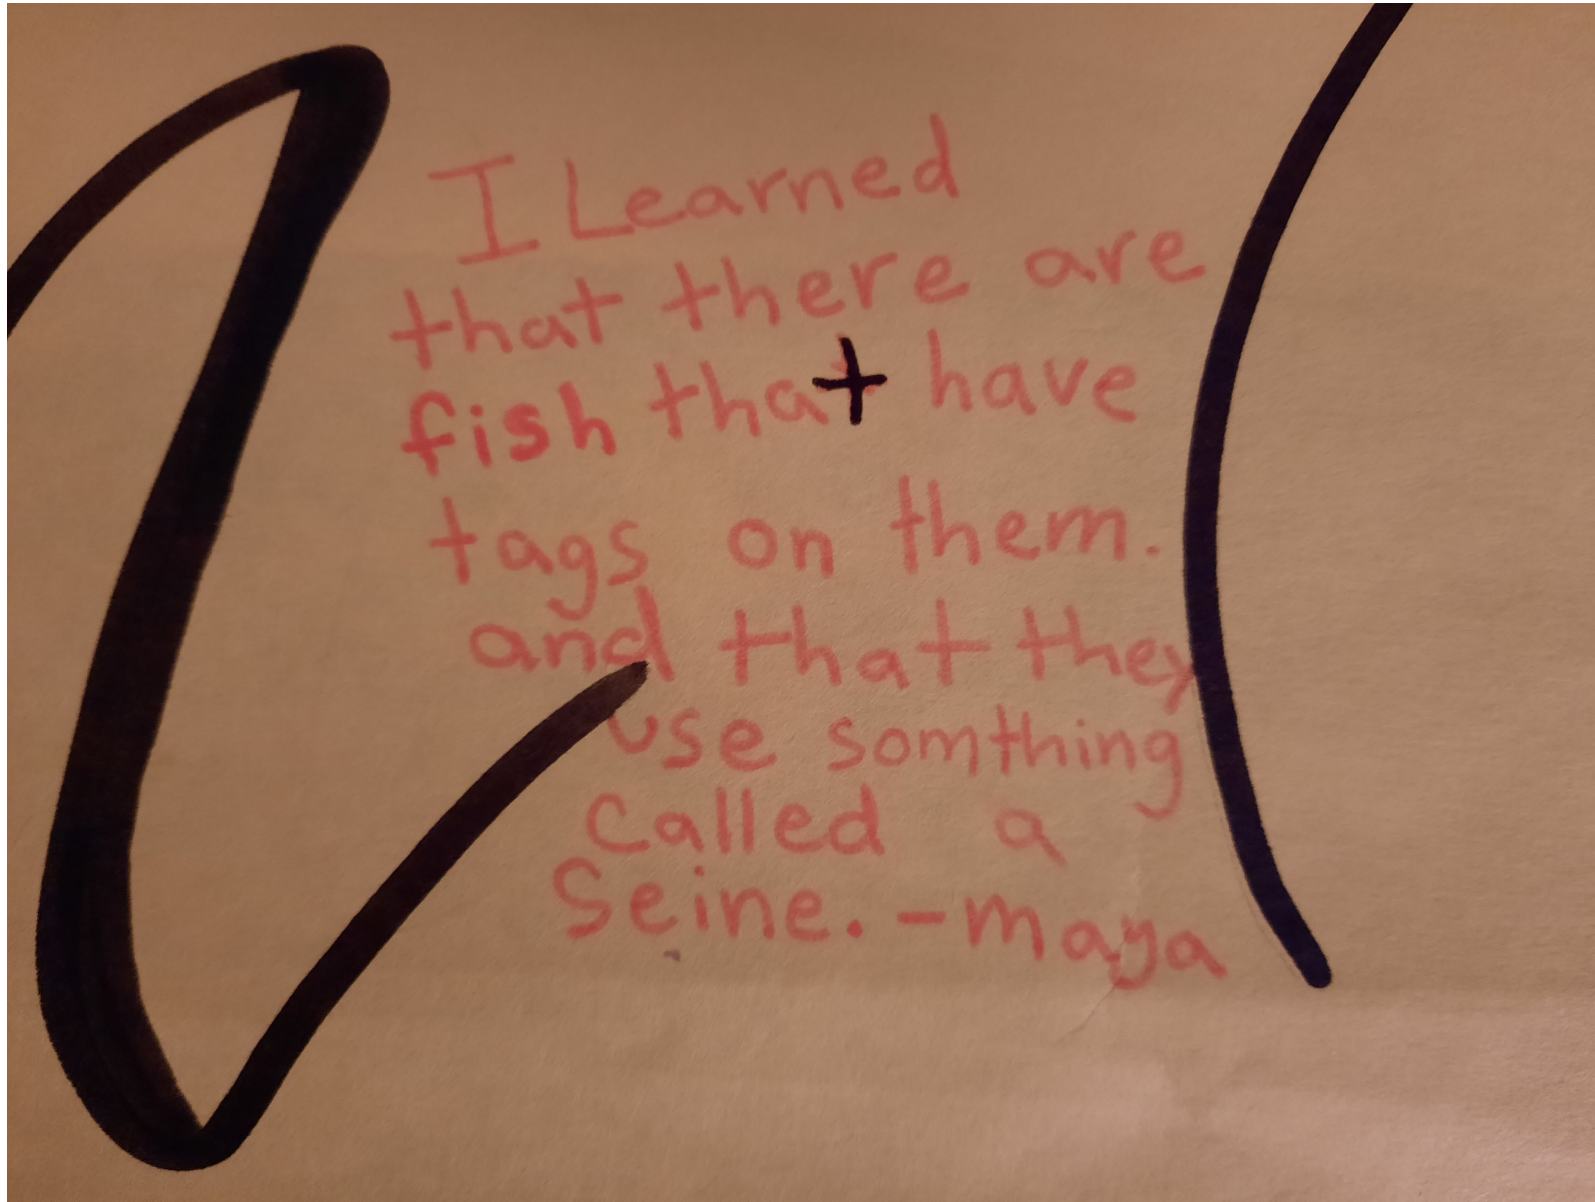 I Learned
that there are
fish that have
tags on them.
and that they
use somthing
called a
Seine. - maya